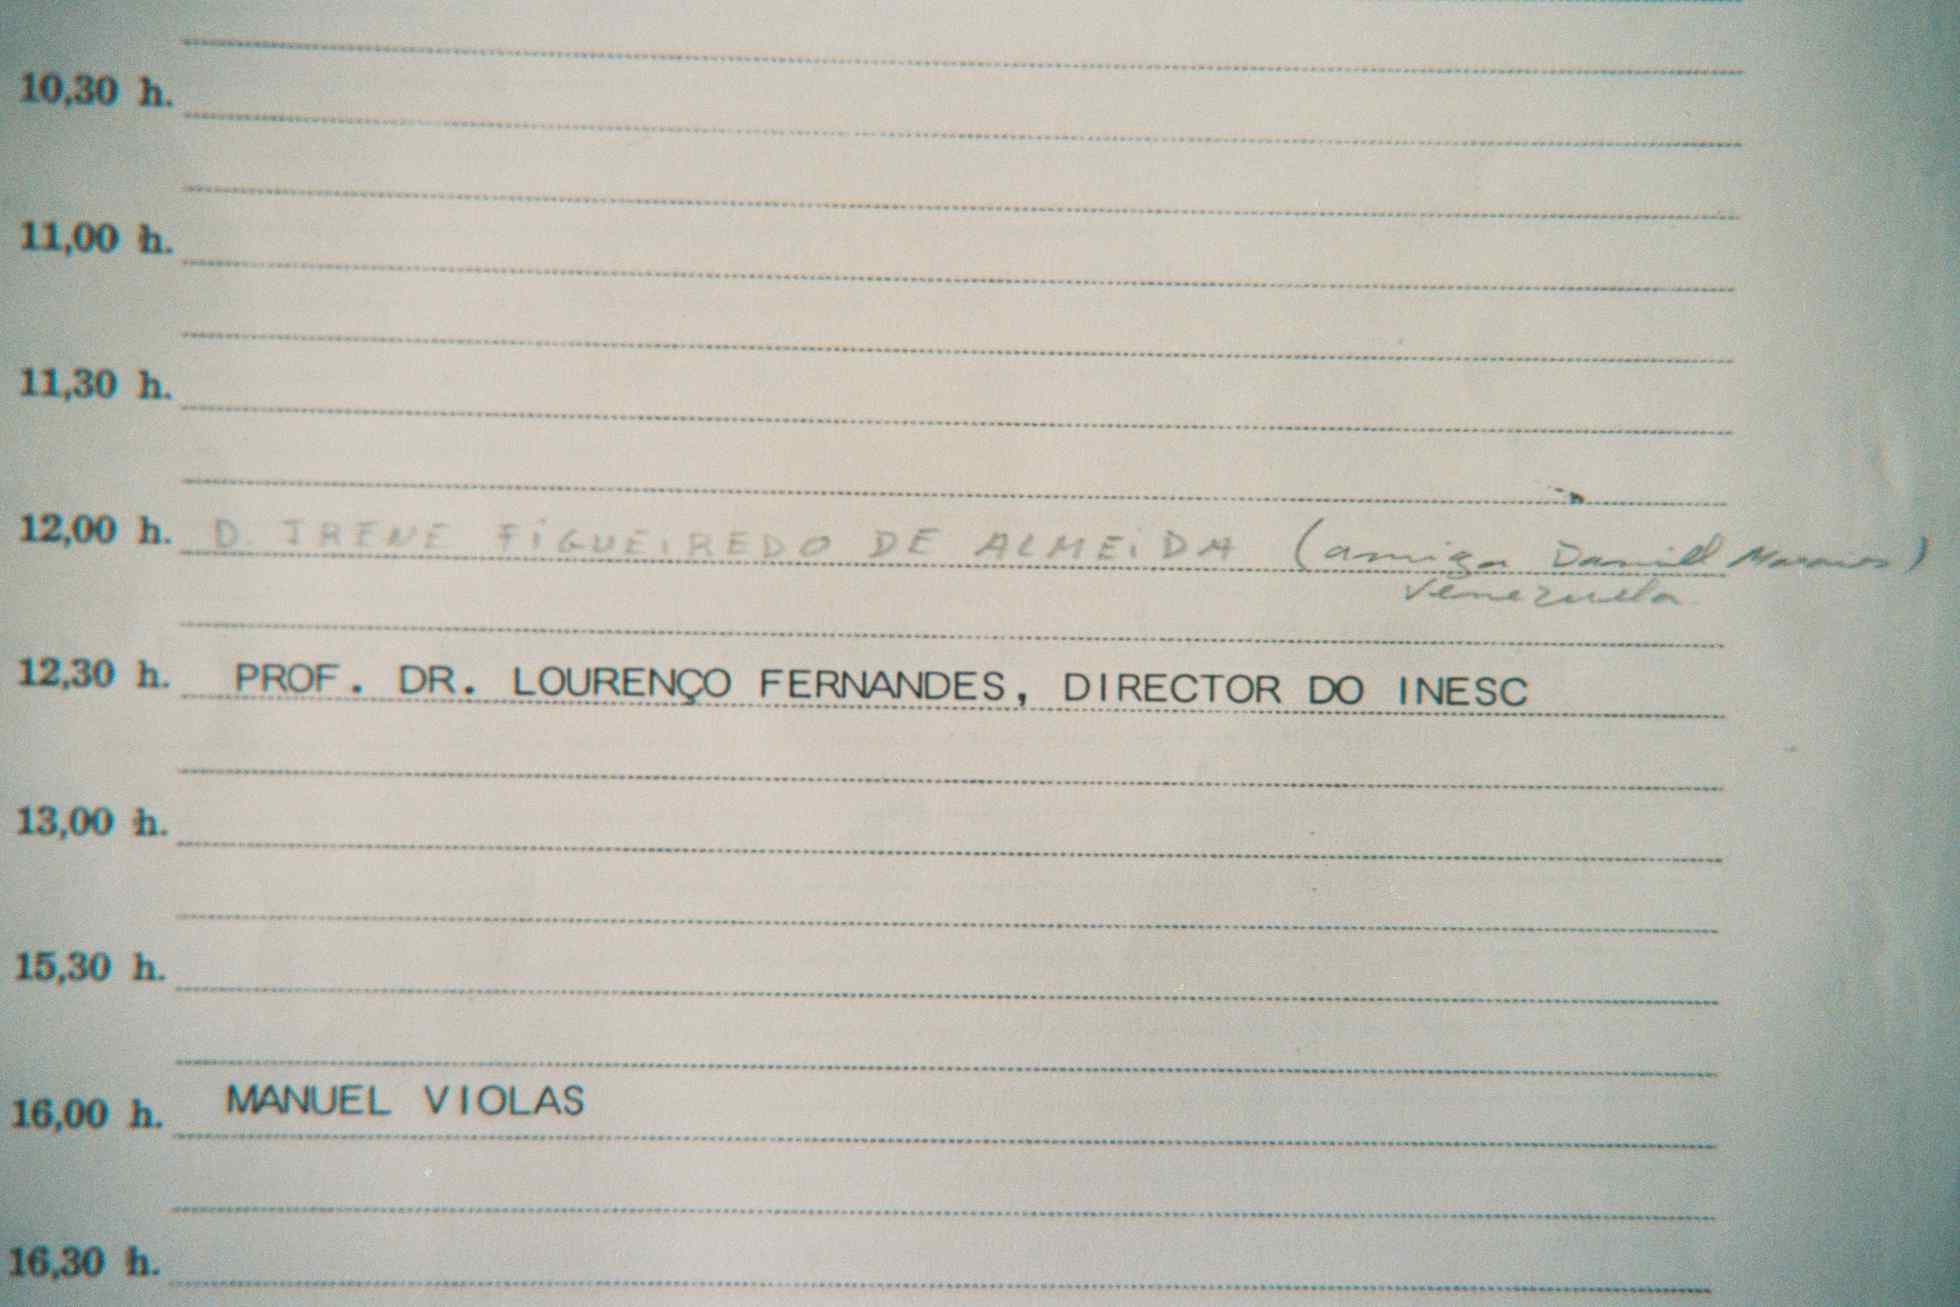 10,30 h.
11,00 h.
11,30 h.
12,00 h. D. IRENE FIGUEIREDO DE ALMEIDA (amiga Daniel Morais)
Venezuela
12,30 h. PROF. DR. LOURENÇO FERNANDES, DIRECTOR DO INESC
13,00 h.
15,30 h.
16,00 h. MANUEL VIOLAS
16,30 h.